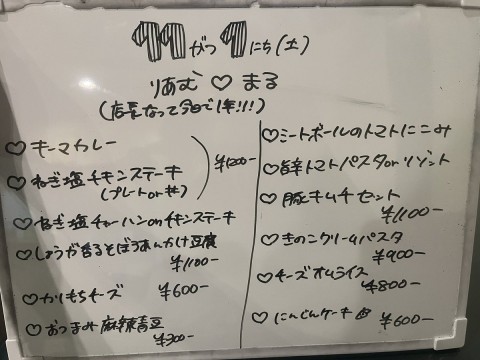 11がつ1にち(土)
りあむ♡まる
(店長なって今日で1年!!!)
♡キーマカレー
♡ねぎ塩チキンステーキ
(プレートor丼)
¥1200-
♡ねぎ塩チャーハンonチキンステーキ
♡しょうが香るそぼろあんかけ豆腐
¥1100-
♡かりもちチーズ ¥600-
♡おつまみ麻辣青豆
¥300-
♡ミートボールのトマトにこみ
♡旨辛トマトパスタorリゾット
♡豚キムチセット
¥1100-
♡きのこクリームパスタ
¥900-
♡チーズオムライス
¥800-
♡にんじんケーキ ¥600-